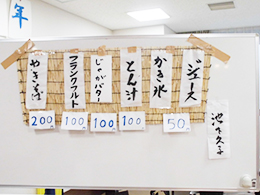 ジュース
かき氷
とん汁
じゃがバター
フランクフルト
やきそば
50
100
100
100
200
年